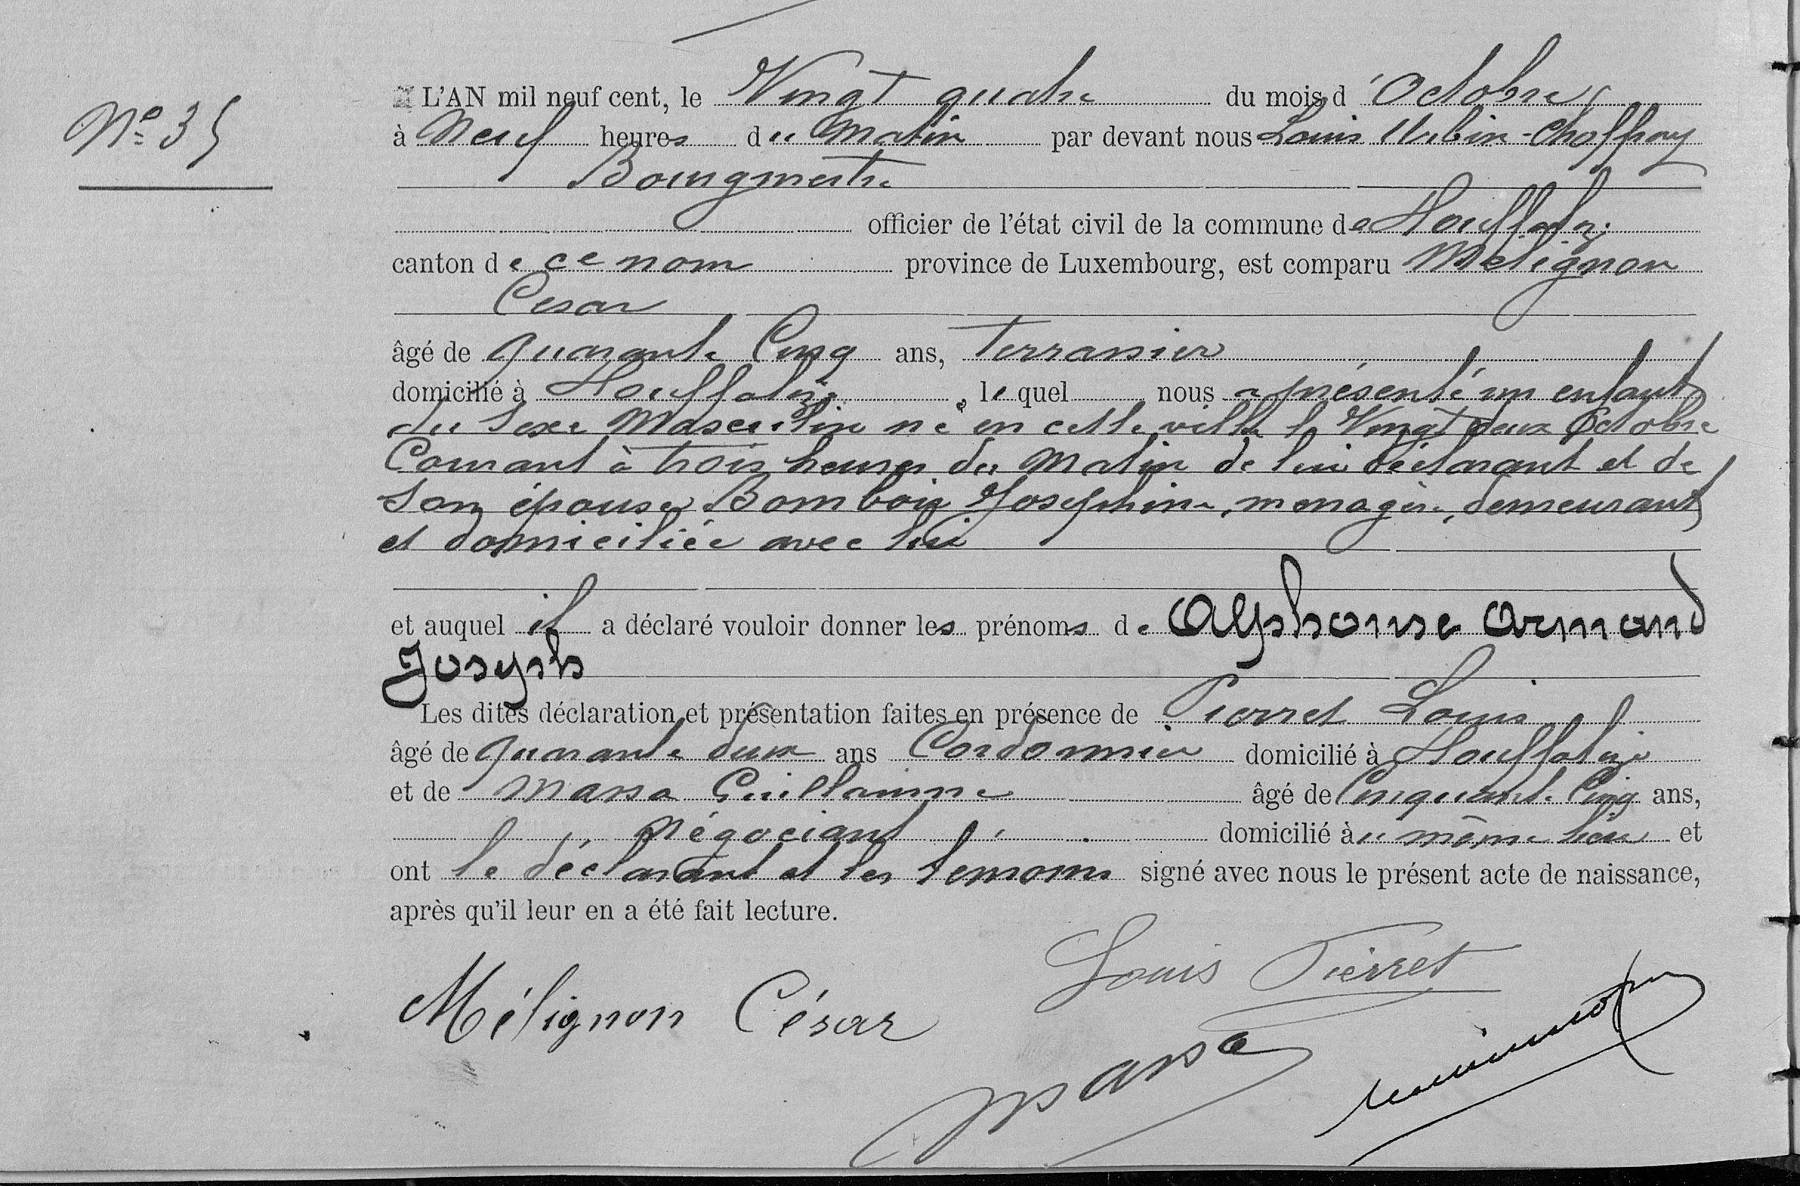 N° 35
L'AN mil neuf cent, le Vingt quatre du mois d'Octobre
à Neuf heures du Matin par devant nous Louis Urbin-Choffray
Bourgmestre
officier de l'état civil de la commune de Houffalize
canton de ce nom province de Luxembourg, est comparu Mélignon
Cesar
âgé de quarante Cinq ans, Terrassier
domicilié à Houffalize, lequel nous a présenté un enfant
du sexe Masculin né en cette ville le Vingt deux Octobre
Courant à trois heures du Matin de lui déclarant et de
son épouse Bomboir Josephine, menagère, demeurant
et domiciliée avec lui
et auquel il a déclaré vouloir donner les prénoms de Alphonse Armand
Joseph
Les dites déclaration et présentation faites en présence de Pierret Louis
âgé de quarante deux ans Cordonnier domicilié à Houffalize
et de Massa Guillaume âgé de Cinquante Cinq ans,
Négociant domicilié à u même lieu et
ont le déclarant et les temoins signé avec nous le présent acte de naissance,
après qu'il leur en a été fait lecture.
Louis Pierret
Mélignon César
Massa